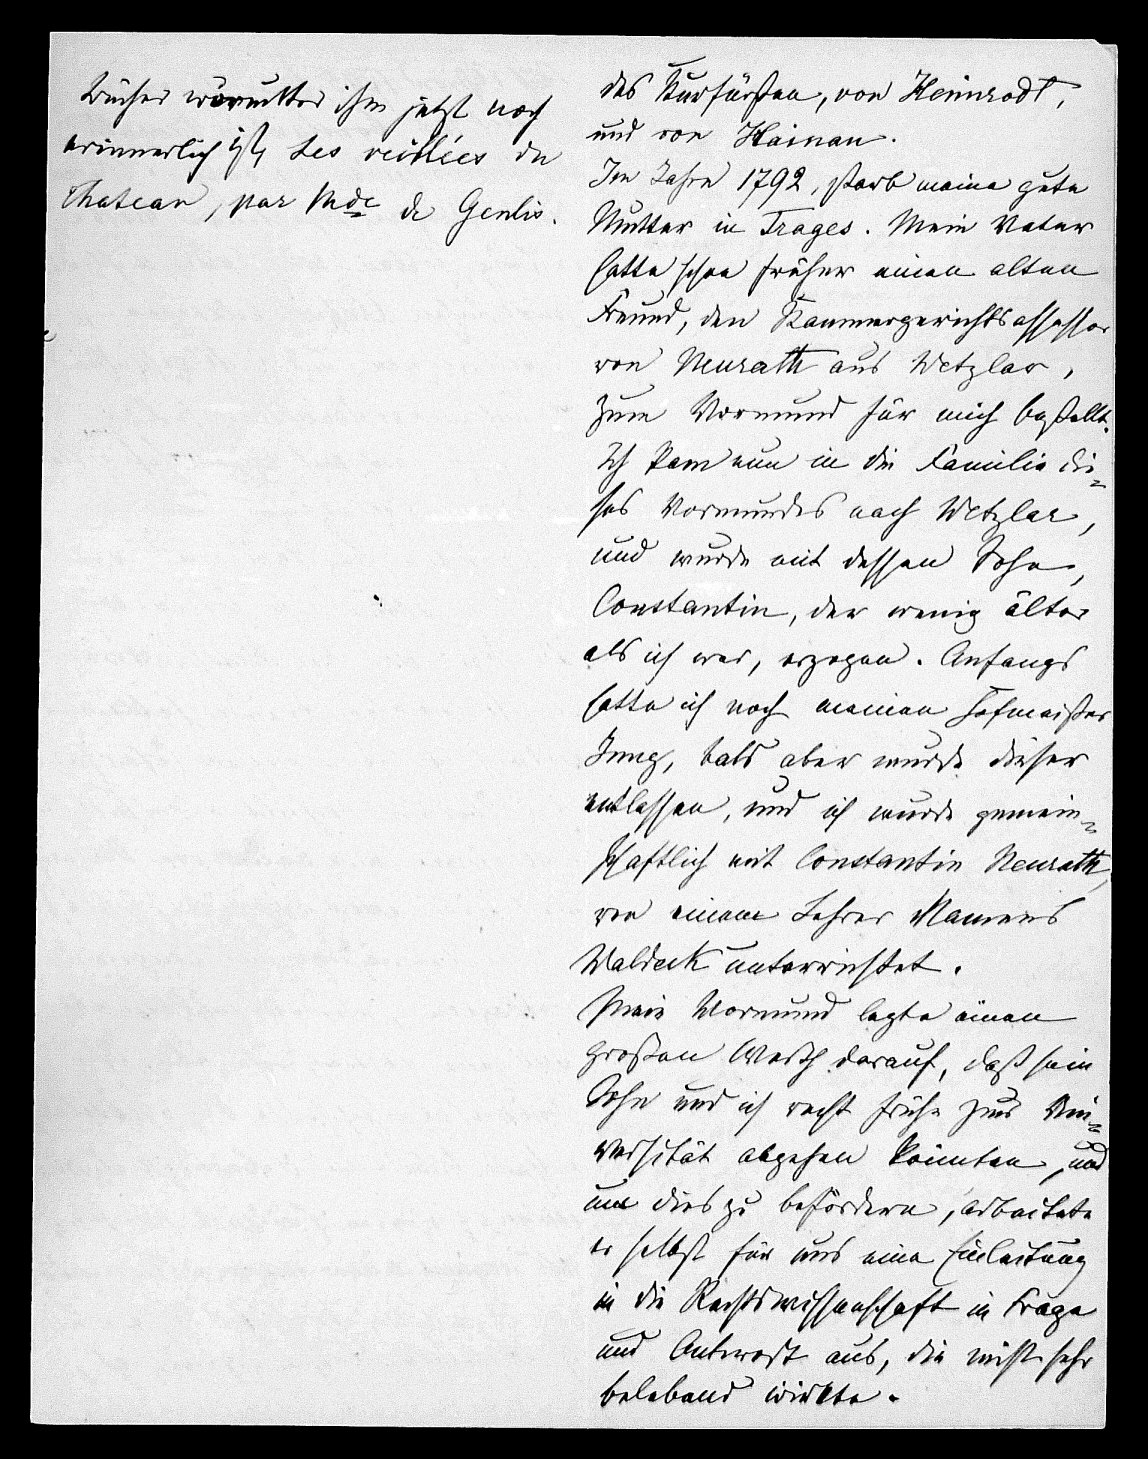 Bücher worunter ihm jetzt noch
erinnerlich ist, Les veillées du
Chateau, par Mde de Genlis.
des Kurfürsten, von Heimrodt,
und von Hainau.
Im Jahre 1792, starb meine gute
Mutter in Trages. Mein Vater
hatte schon früher einen alten
Freund, den Kammergerichtsassessor
von Neurath aus Wetzlar,
zum Vormund für mich bestellt.
Ich kam nun in die Familie die-
ses Vormundes nach Wetzlar,
und wurde mit dessen Sohn,
Constantin, der wenig älter
als ich war, erzogen. Anfangs
hatte ich noch meinen Hofmeister
Jung, bald aber wurde dieser
entlassen, und ich wurde gemein-
schaftlich mit Constantin Neurath,
von einem Lehrer Namens
Waldeck unterrichtet.
Mein Vormund legte einen
großen Werth darauf, daß sein
Sohn und ich recht frühe zur Uni-
versität abgehen könnten, und
um dies zu befördern, arbeitete
er selbst für uns eine Einleitung
in die Rechtswissenschaft in Frage
und Antwort aus, die nicht sehr
belebend wirkte.